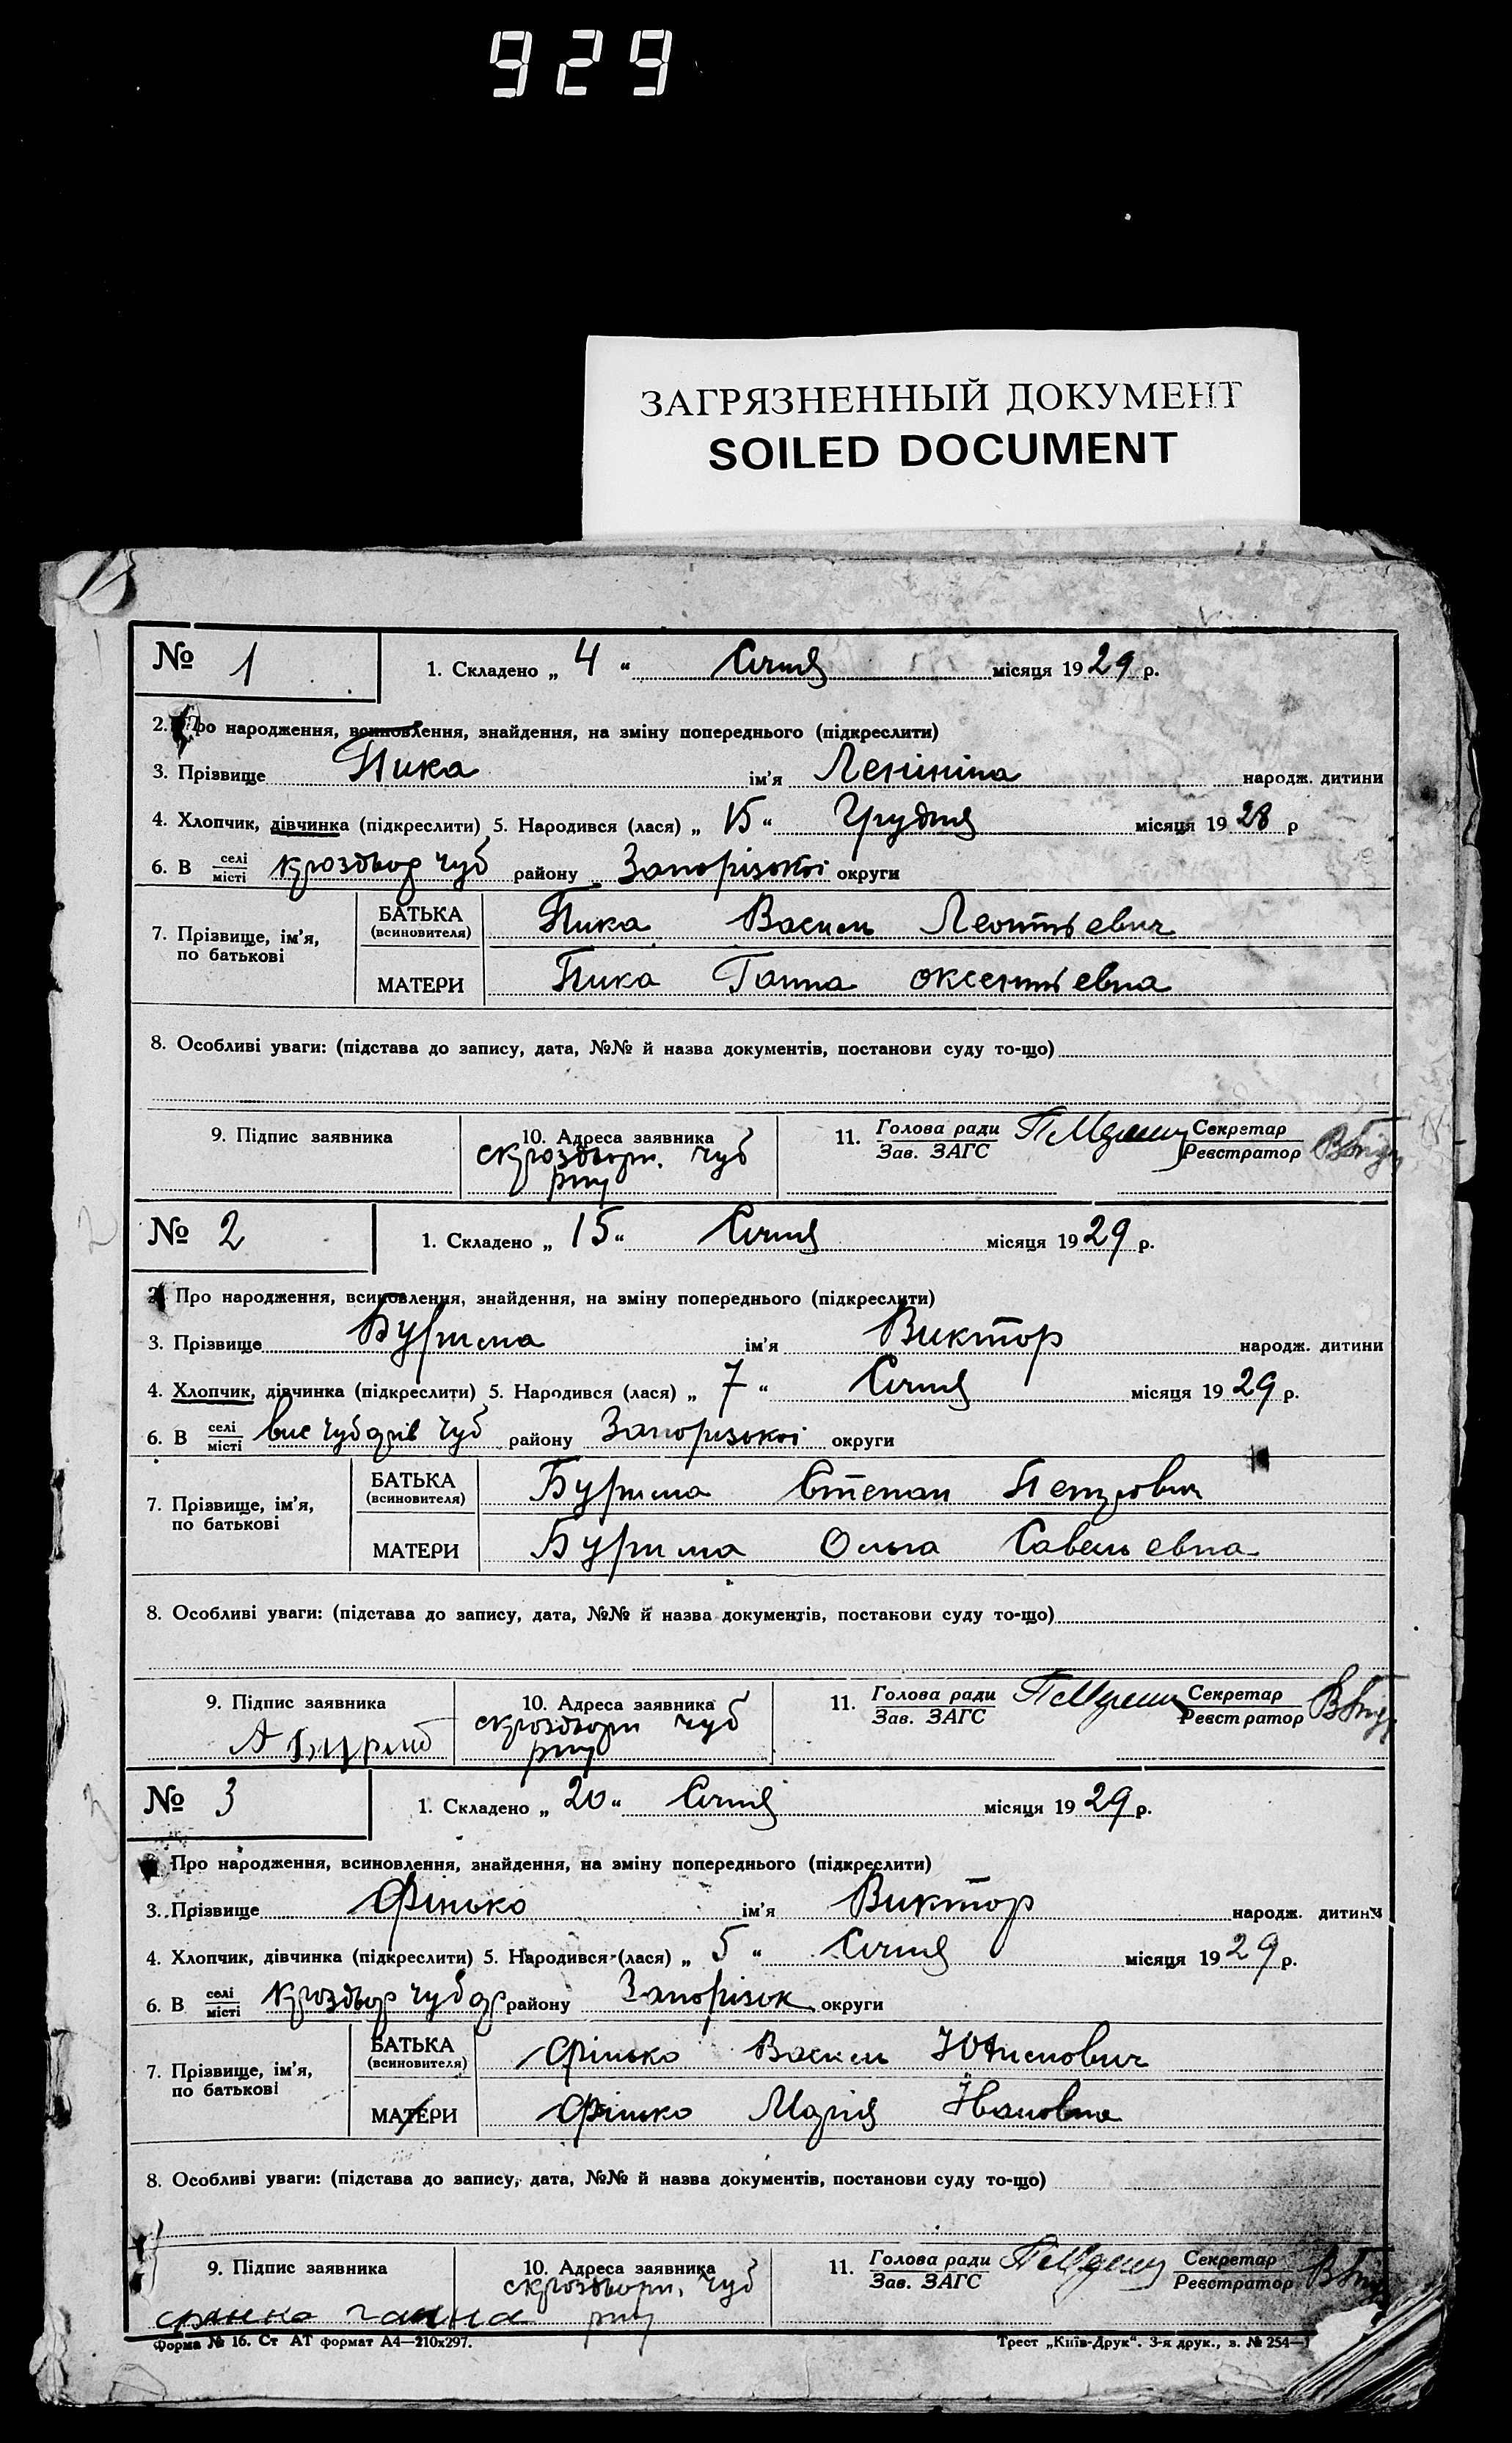 929
ЗАГРЯЗНЕННЫЙ ДОКУМЕНТ
SOILED DOCUMENT
№ 1 1. Складено „ 4 “ Січня місяця 1929 р.
2. Про народження, всиновлення, знайдення, на зміну попереднього (підкреслити)
3. Прізвище Пика ім’я Ленініна народж. дитини
4. Хлопчик, дівчинка (підкреслити) 5. Народився (лася) „ 15 “ Грудня місяця 1928 р
6. В селі/місті чуб району Запорізької округи
7. Прізвище, ім’я, по батькові
БАТЬКА (всиновителя) Пика Василь Леонтьевич
МАТЕРИ Пика Ганна Оксентьевна
8. Особливі уваги: (підстава до запису, дата, №№ й назва документів, постанови суду то-що)
9. Підпис заявника 10. Адреса заявника 11. Голова ради Секретар
Зав. ЗАГС Реєстратор
чуб
№ 2 1. Складено „ 15 “ Січня місяця 1929 р.
2. Про народження, всиновлення, знайдення, на зміну попереднього (підкреслити)
3. Прізвище Бурима ім’я Виктор народж. дитини
4. Хлопчик, дівчинка (підкреслити) 5. Народився (лася) „ 7 “ Січня місяця 1929 р.
6. В селі/місті чуб району Запорізької округи
7. Прізвище, ім’я, по батькові
БАТЬКА (всиновителя) Бурима Степан Петрович
МАТЕРИ Бурима Ольга Савельевна
8. Особливі уваги: (підстава до запису, дата, №№ й назва документів, постанови суду то-що)
9. Підпис заявника 10. Адреса заявника 11. Голова ради Секретар
Зав. ЗАГС Реєстратор
чуб
№ 3 1. Складено „ 20 “ Січня місяця 1929 р.
Про народження, всиновлення, знайдення, на зміну попереднього (підкреслити)
3. Прізвище Фінько ім’я Виктор народж. дитини
4. Хлопчик, дівчинка (підкреслити) 5. Народився (лася) „ 5 “ Січня місяця 1929 р.
6. В селі/місті району Запорізьк. округи
7. Прізвище, ім’я, по батькові
БАТЬКА (всиновителя) Фінько Василь
МАТЕРИ Фінько Марія Ивановна
8. Особливі уваги: (підстава до запису, дата, №№ й назва документів, постанови суду то-що)
9. Підпис заявника 10. Адреса заявника 11. Голова ради Секретар
Зав. ЗАГС Реєстратор
чуб
Форма № 16. Ст АТ формат А4—210х297. Трест „Київ-Друк“. 3-я друк., з. № 254—